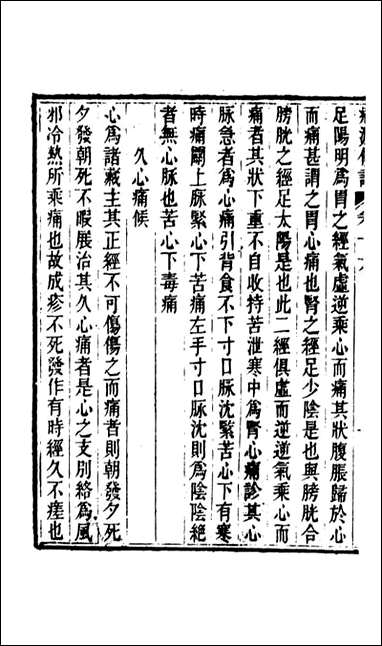 足陽明為胃之經氣虛逆乘心而痛其狀腹脹歸於心
而痛甚謂之胃心痛也腎之經足少陰是也與膀胱合
膀胱之經足太陽是也此二經俱虛而逆逆氣乘心而
痛者其狀下重不自收持苦泄寒中為腎心痛診其心
脉急者為心痛引背食不下寸口脉沈緊苦心下有寒
時痛關上脉緊心下苦痛左手寸口脉沈則為陰陰絕
者無心脉也苦心下毒痛
久心痛候
心為諸藏主其正經不可傷傷之而痛者則朝發夕死
夕發朝死不暇展治其久心痛者是心之支別絡為風
邪冷熱所乘痛也故成疹不死發作有時經久不瘥也